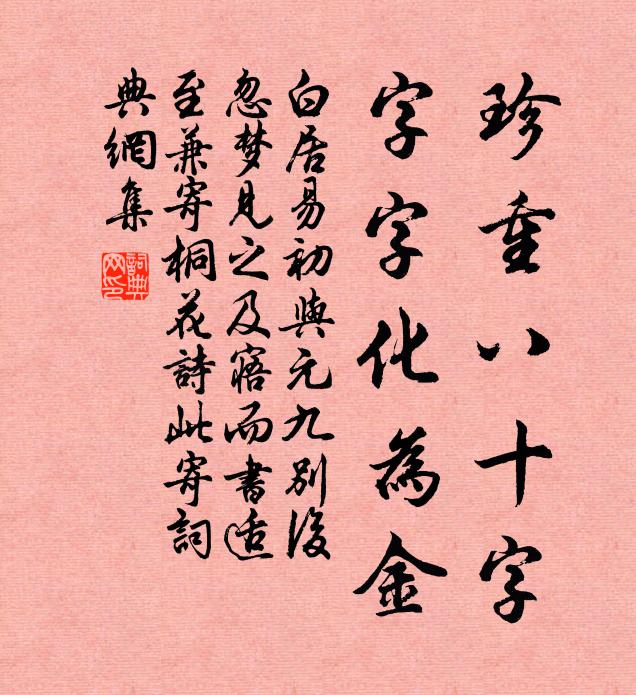 珍重八十字
字字化為金
白居易初與元九別後
忽梦見之及寤而書适
至兼寄桐花詩此寄詞
典網集
詞典
网印